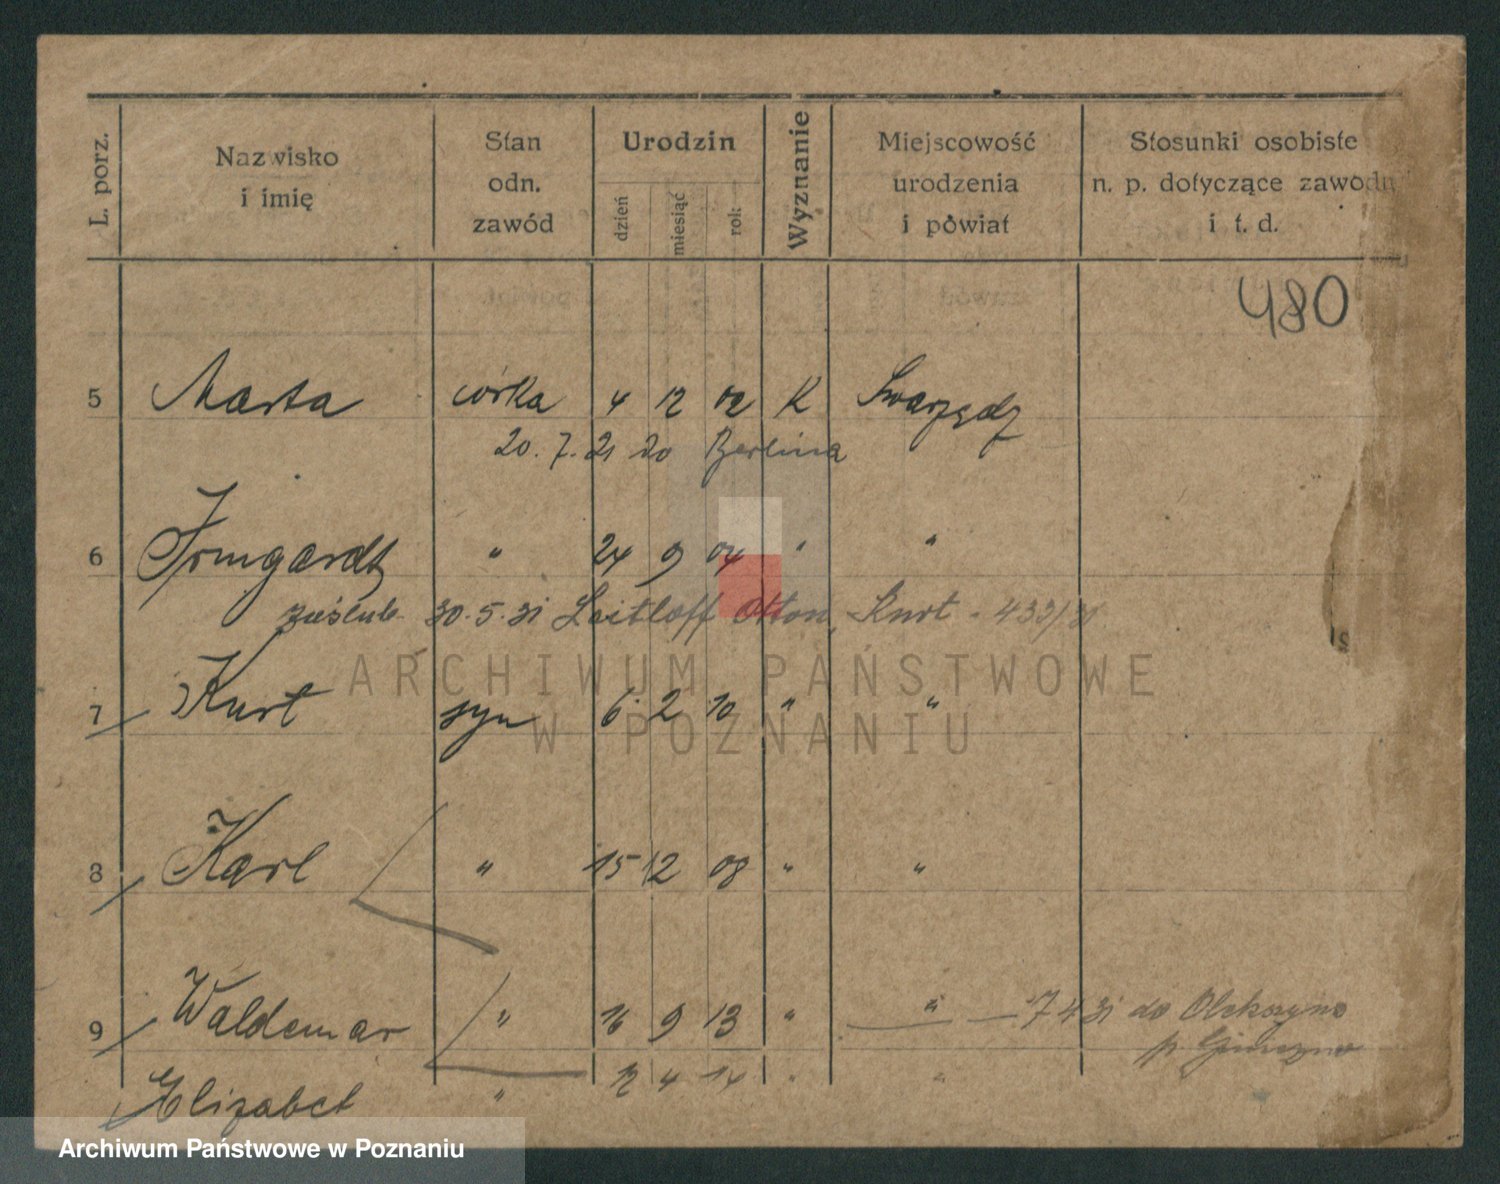 L. porz.
Nazwisko
i imię
Stan
odn.
zawód
Urodzin
dzień
miesiąc
rok
Wyznanie
Miejscowość
urodzenia
i powiat
Stosunki osobiste
n. p. dotyczące zawodu
i t. d.
480
5 Marta córka 4 12 02 K Swarzędz
20. 7. 21 do Berlina
6 Irmgardt " 24 9 04 " "
zaślub. 30. 5. 31 Leitloff Otton, Kurt - 433/31
7 Kurt syn 6 2 10 " "
8 Karl " 15 12 08 " "
9 Waldemar " 16 9 13 " " 7 4 31 do
p.
Elizabet " 12 4 14 " "
ARCHIWUM PAŃSTWOWE
W POZNANIU
Archiwum Państwowe w Poznaniu